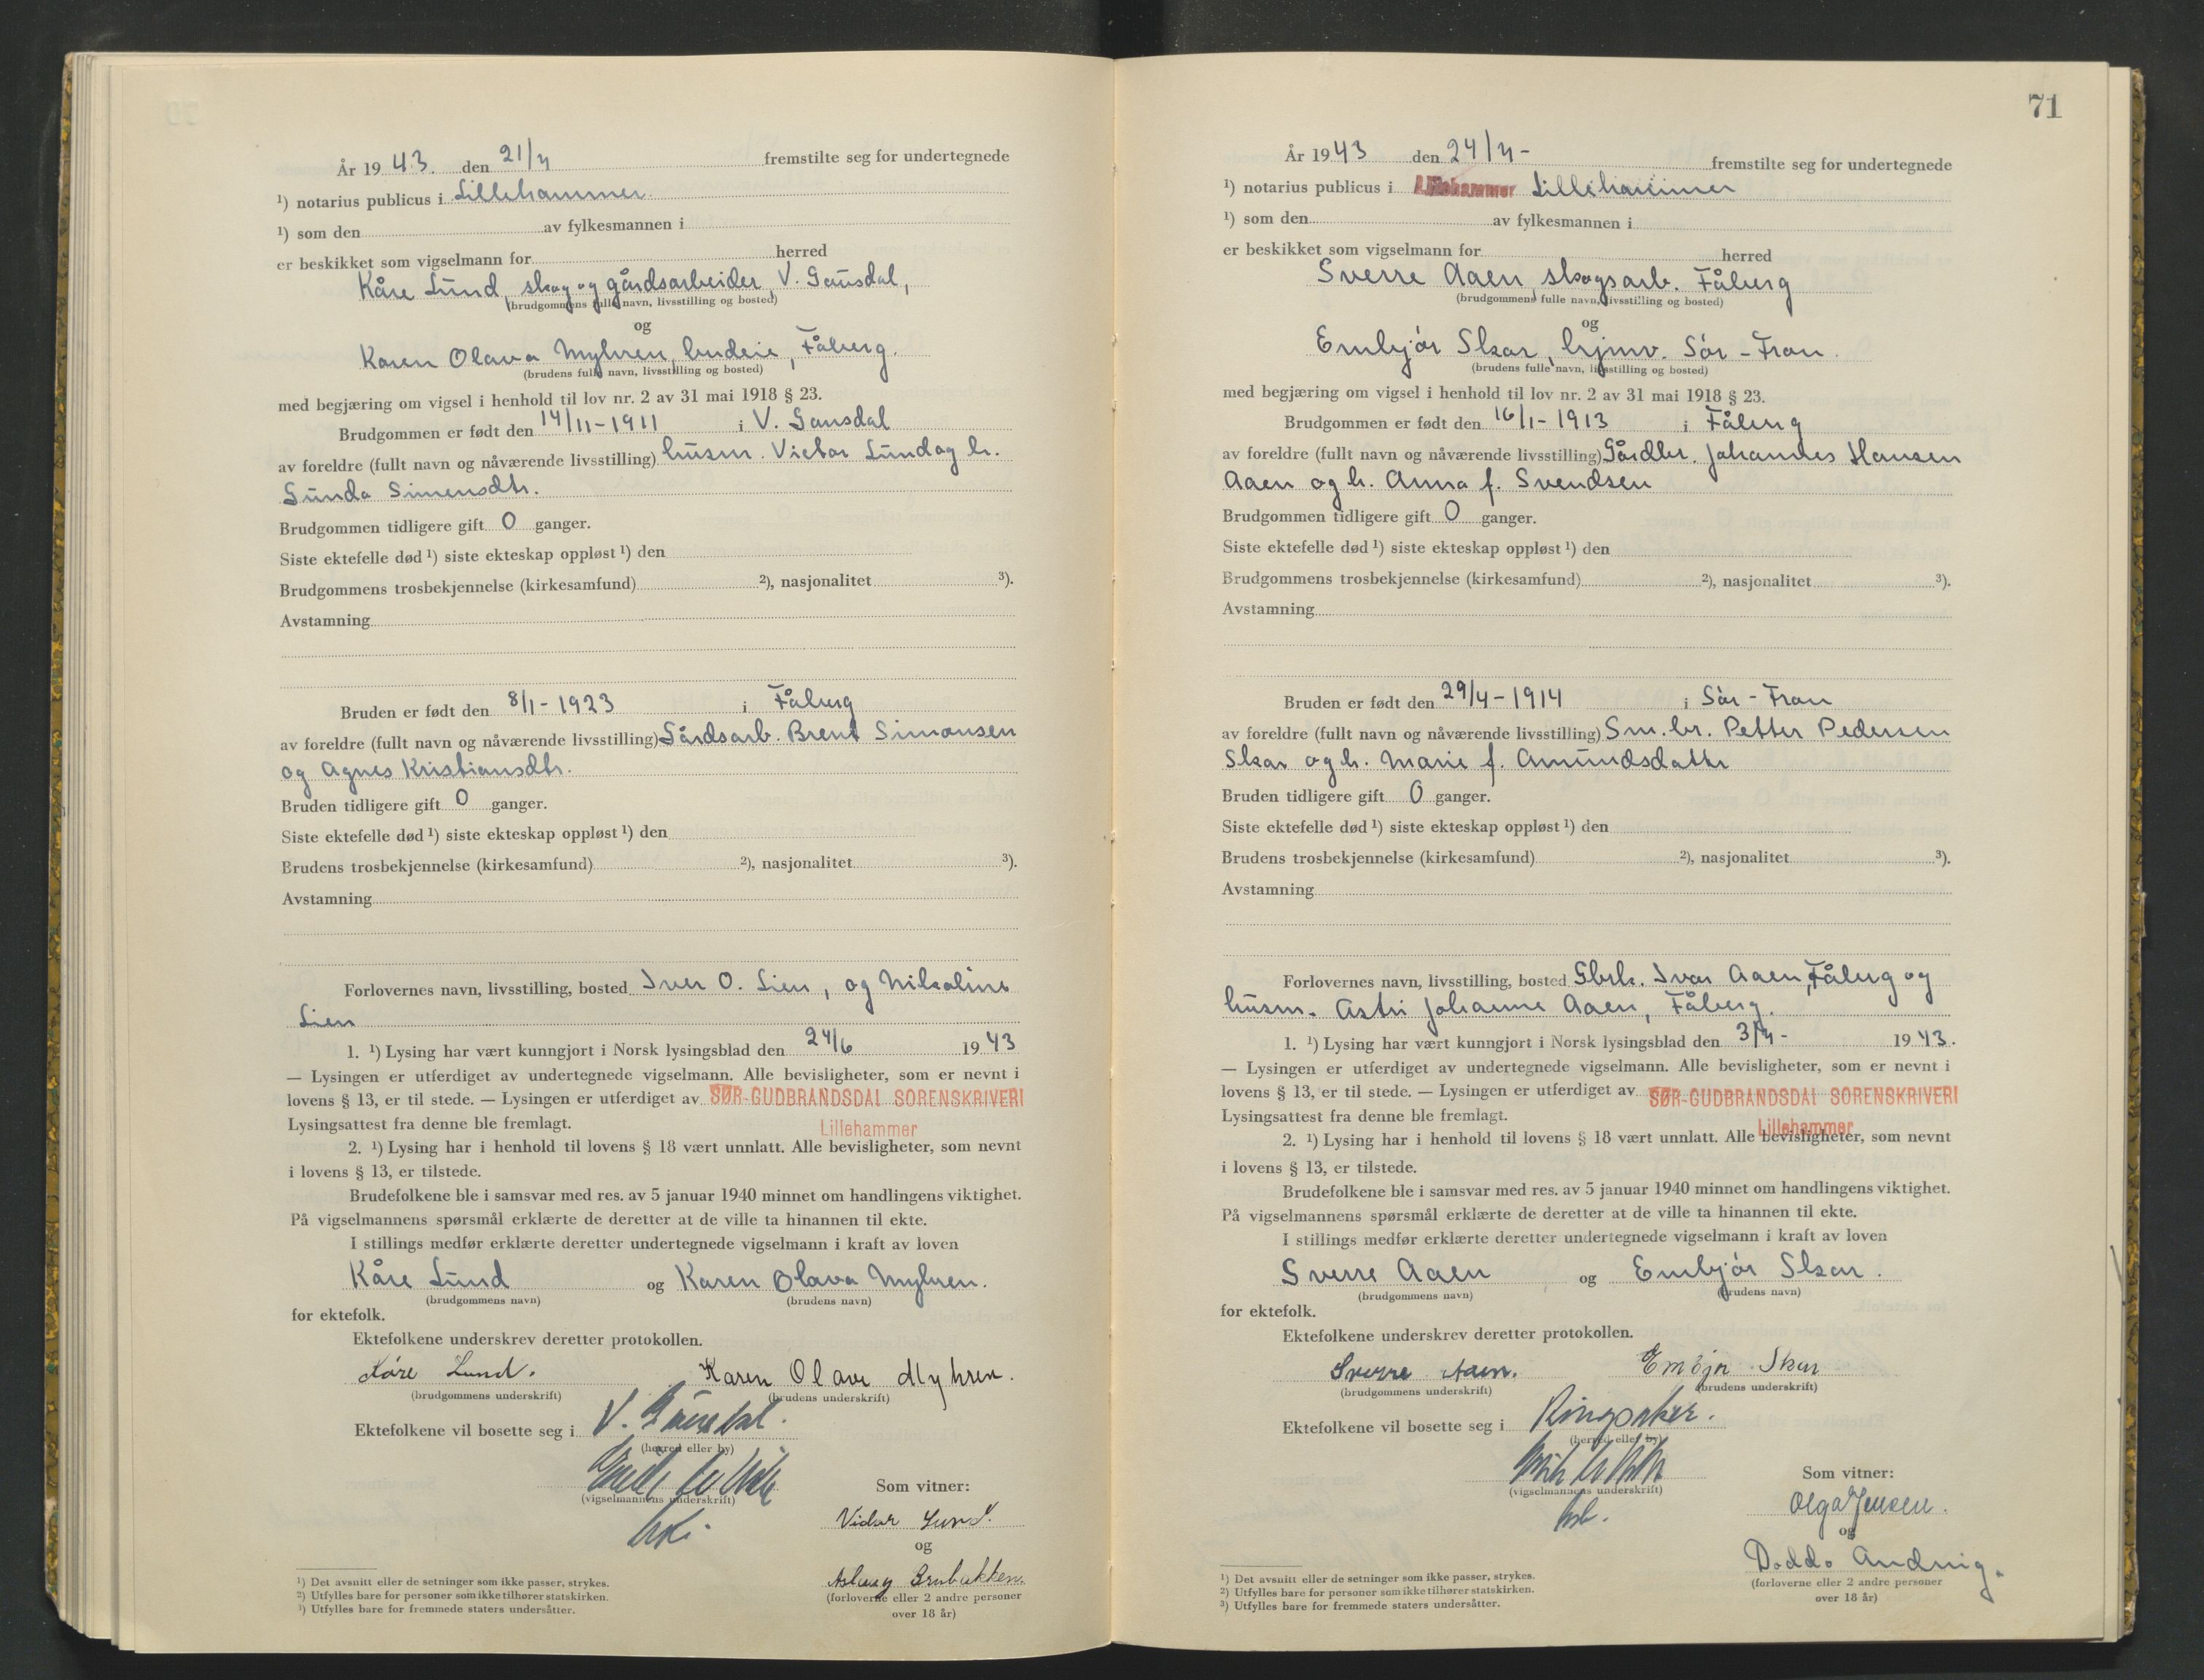 År 1943. den 21/7 fremstilte seg for undertegnede
¹) notarius publicus i Lillehammer.
¹) som den av fylkesmannen i
er beskikket som vigselmann for herred
Kåre Lund, skog og gårdsarbeider, V. Gausdal,
(brudgommens fulle navn, livsstilling og bosted)
og
Karen Olava Myhren, budeie, Fåberg.
(brudens fulle navn, livsstilling og bosted)
med begjæring om vigsel i henhold til lov nr. 2 av 31 mai 1918 § 23.
Brudgommen er født den 14/11-1911 i V. Gausdal
av foreldre (fullt navn og nåværende livsstilling) husm. Victor Lund og h.
Lunda Simensdtr.
Brudgommen tidligere gift 0 ganger.
Siste ektefelle død ¹) siste ekteskap oppløst ¹) den
Brudgommens trosbekjennelse (kirkesamfund) ²), nasjonalitet ³).
Avstamning
Bruden er født den 8/1-1923 i Fåberg
av foreldre (fullt navn og nåværende livsstilling) Gårdsarb. Brent Simonsen
og Agnes Kristiansdtr.
Bruden tidligere gift 0 ganger.
Siste ektefelle død ¹) siste ekteskap oppløst ¹) den
Brudens trosbekjennelse (kirkesamfund) ²), nasjonalitet ³).
Avstamning
Forlovernes navn, livsstilling, bosted Iver O. Lien, og Nikoline
Lien
1. ¹) Lysing har vært kunngjort i Norsk lysingsblad den 24/6 1943
— Lysingen er utferdiget av undertegnede vigselmann. Alle bevisligheter, som er nevnt i
lovens § 13, er til stede. — Lysingen er utferdiget av SØR-GUDBRANDSDAL SORENSKRIVERI
Lysingsattest fra denne ble fremlagt. Lillehammer
2. ¹) Lysing har i henhold til lovens § 18 vært unnlatt. Alle bevisligheter, som nevnt
i lovens § 13, er tilstede.
Brudefolkene ble i samsvar med res. av 5 januar 1940 minnet om handlingens viktighet.
På vigselmannens spørsmål erklærte de deretter at de ville ta hinannen til ekte.
I stillings medfør erklærte deretter undertegnede vigselmann i kraft av loven
Kåre Lund og Karen Olava Myhren.
(brudgommens navn) (brudens navn)
for ektefolk.
Ektefolkene underskrev deretter protokollen.
Kåre Lund. Karen Olava Myhren.
(brudgommens underskrift) (brudens underskrift)
Ektefolkene vil bosette seg i V. Gausdal.
(herred eller by)
(vigselmannens underskrift)
Som vitner:
Vidar Lund.
og
Aslaug Brubakken.
(forloverne eller 2 andre personer
over 18 år)
¹) Det avsnitt eller de setninger som ikke passer, strykes.
²) Utfylles bare for personer som ikke tilhører statskirken.
³) Utfylles bare for fremmede staters undersåtter.
71
År 1943 den 24/7- fremstilte seg for undertegnede
¹) notarius publicus i Lillehammer Lillehammer
¹) som den av fylkesmannen i
er beskikket som vigselmann for herred
Sverre Aaen, skogsarb. Fåberg
(brudgommens fulle navn, livsstilling og bosted)
og
Embjør Skar, hjmv. Sør-Fron.
(brudens fulle navn, livsstilling og bosted)
med begjæring om vigsel i henhold til lov nr. 2 av 31 mai 1918 § 23.
Brudgommen er født den 16/1-1913 i Fåberg
av foreldre (fullt navn og nåværende livsstilling) Gårdbr. Johannes Hansen
Aaen og h. Anna f. Svendsen
Brudgommen tidligere gift 0 ganger.
Siste ektefelle død ¹) siste ekteskap oppløst ¹) den
Brudgommens trosbekjennelse (kirkesamfund) ²), nasjonalitet ³).
Avstamning
Bruden er født den 29/4-1914 i Sør-Fron
av foreldre (fullt navn og nåværende livsstilling) Sm.br. Petter Pedersen
Skar og h. Marie f. Amundsdattr
Bruden tidligere gift 0 ganger.
Siste ektefelle død ¹) siste ekteskap oppløst ¹) den
Brudens trosbekjennelse (kirkesamfund) ²), nasjonalitet ³).
Avstamning
Forlovernes navn, livsstilling, bosted Gbrk. Ivar Aaen, Fåberg og
husm. Astri Johanne Aaen, Fåberg.
1. ¹) Lysing har vært kunngjort i Norsk lysingsblad den 3/7- 1943.
— Lysingen er utferdiget av undertegnede vigselmann. Alle bevisligheter, som er nevnt i
lovens § 13, er til stede. — Lysingen er utferdiget av SØR-GUDBRANDSDAL SORENSKRIVERI
Lysingsattest fra denne ble fremlagt. Lillehammer
2. ¹) Lysing har i henhold til lovens § 18 vært unnlatt. Alle bevisligheter, som nevnt
i lovens § 13, er tilstede.
Brudefolkene ble i samsvar med res. av 5 januar 1940 minnet om handlingens viktighet.
På vigselmannens spørsmål erklærte de deretter at de ville ta hinannen til ekte.
I stillings medfør erklærte deretter undertegnede vigselmann i kraft av loven
Sverre Aaen og Embjør Skar.
(brudgommens navn) (brudens navn)
for ektefolk.
Ektefolkene underskrev deretter protokollen.
Sverre Aaen. Embjør Skar
(brudgommens underskrift) (brudens underskrift)
Ektefolkene vil bosette seg i Ringsaker.
(herred eller by)
(vigselmannens underskrift)
Som vitner:
Olga Jensen.
og
Doddo
(forloverne eller 2 andre personer
over 18 år)
¹) Det avsnitt eller de setninger som ikke passer, strykes.
²) Utfylles bare for personer som ikke tilhører statskirken.
³) Utfylles bare for fremmede staters undersåtter.